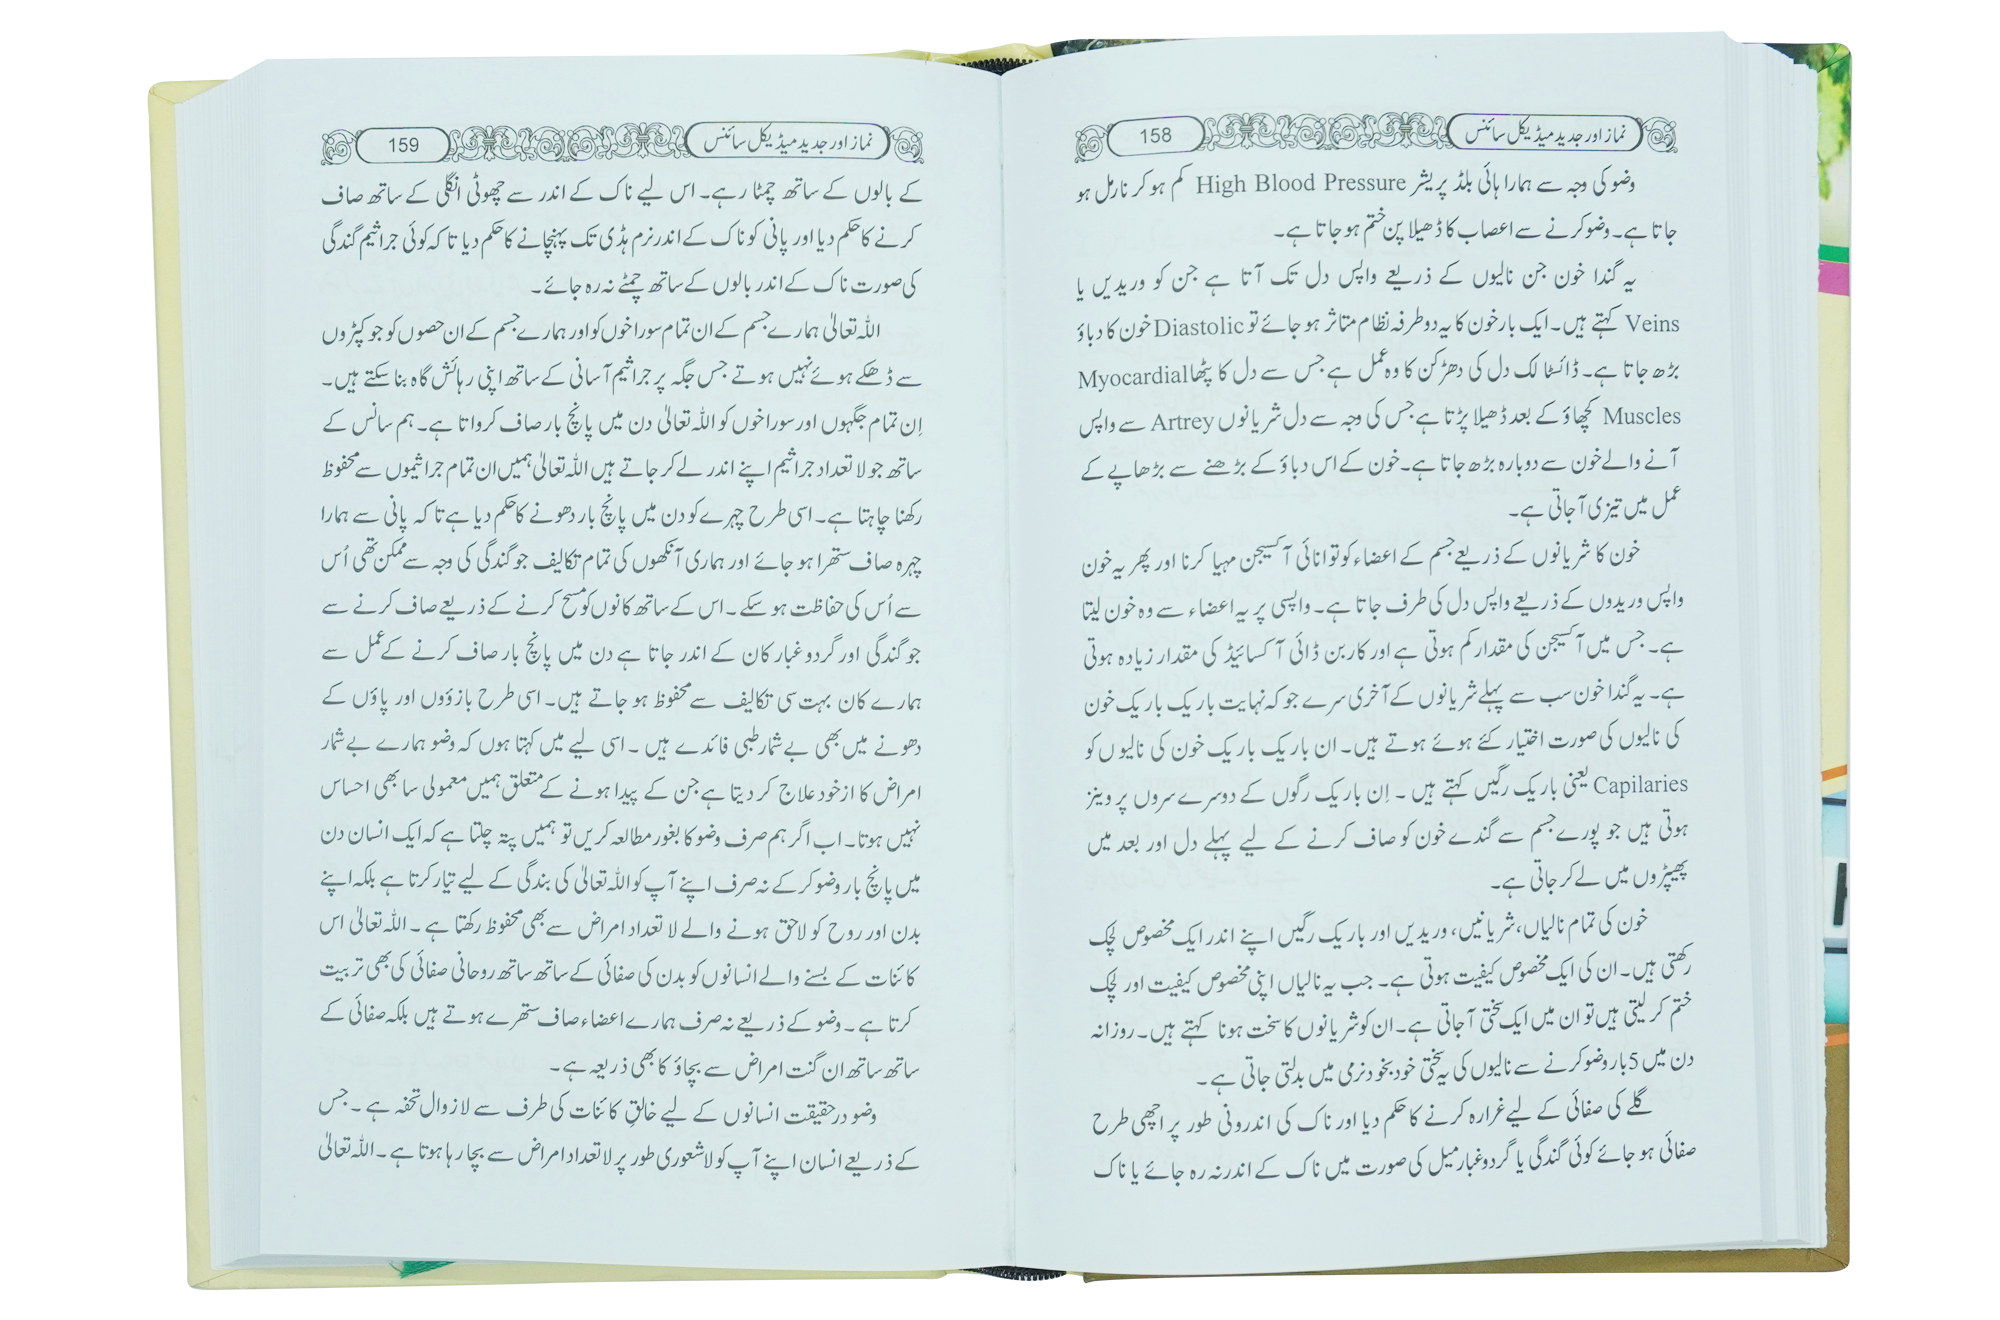 نماز اور جدید میڈیکل سائنس 158
وضو کی وجہ سے ہمارا ہائی بلڈ پریشر High Blood Pressure کم ہو کر نارمل ہو
جاتا ہے۔ وضو کرنے سے اعصاب کا ڈھیلا پن ختم ہو جاتا ہے۔
یہ گندا خون جن نالیوں کے ذریعے واپس دل تک آتا ہے جن کو وریدیں یا
Veins کہتے ہیں۔ ایک بار خون کا یہ دو طرفہ نظام متاثر ہو جائے تو Diastolic خون کا دباؤ
بڑھ جاتا ہے۔ ڈائسٹا لک دل کی دھڑکن کا وہ عمل ہے جس سے دل کا پٹھا Myocardial
Muscles کھچاؤ کے بعد ڈھیلا پڑتا ہے جس کی وجہ سے دل شریانوں Artrey سے واپس
آنے والے خون سے دوبارہ بڑھ جاتا ہے۔ خون کے اس دباؤ کے بڑھنے سے بڑھاپے کے
عمل میں تیزی آ جاتی ہے۔
خون کا شریانوں کے ذریعے جسم کے اعضاء کو توانائی آکسیجن مہیا کرنا اور پھر یہ خون
واپس وریدوں کے ذریعے واپس دل کی طرف جاتا ہے۔ واپسی پر یہ اعضاء سے وہ خون لیتا
ہے۔ جس میں آکسیجن کی مقدار کم ہوتی ہے اور کاربن ڈائی آکسائیڈ کی مقدار زیادہ ہوتی
ہے۔ یہ گندا خون سب سے پہلے شریانوں کے آخری سرے جو کہ نہایت باریک باریک خون
کی نالیوں کی صورت اختیار کئے ہوئے ہوتے ہیں۔ ان باریک باریک خون کی نالیوں کو
Capilaries یعنی باریک رگیں کہتے ہیں ۔ اِن باریک رگوں کے دوسرے سروں پر وینز
ہوتی ہیں جو پورے جسم سے گندے خون کو صاف کرنے کے لیے پہلے دل اور بعد میں
پھیپڑوں میں لے کر جاتی ہے۔
خون کی تمام نالیاں، شریانیں، وریدیں اور باریک رگیں اپنے اندر ایک مخصوص لچک
رکھتی ہیں۔ ان کی ایک مخصوص کیفیت ہوتی ہے۔ جب یہ نالیاں اپنی مخصوص کیفیت اور لچک
ختم کر لیتی ہیں تو ان میں ایک سختی آ جاتی ہے۔ ان کو شریانوں کا سخت ہونا کہتے ہیں۔ روزانہ
دن میں 5 بار وضو کرنے سے نالیوں کی یہ سختی خود بخود نرمی میں بدلتی جاتی ہے۔
گلے کی صفائی کے لیے غرارہ کرنے کا حکم دیا اور ناک کی اندرونی طور پر اچھی طرح
صفائی ہو جائے کوئی گندگی یا گردوغبار میل کی صورت میں ناک کے اندر نہ رہ جائے یا ناک
نماز اور جدید میڈیکل سائنس 159
کے بالوں کے ساتھ چمٹا رہے۔ اس لیے ناک کے اندر سے چھوٹی انگلی کے ساتھ صاف
کرنے کا حکم دیا اور پانی کو ناک کے اندر نرم ہڈی تک پہنچانے کا حکم دیا تا کہ کوئی جراثیم گندگی
کی صورت ناک کے اندر بالوں کے ساتھ چمٹے نہ رہ جائے۔
اللہ تعالیٰ ہمارے جسم کے ان تمام سوراخوں کو اور ہمارے جسم کے ان حصوں کو جو کپڑوں
سے ڈھکے ہوئے نہیں ہوتے جس جگہ پر جراثیم آسانی کے ساتھ اپنی رہائش گاہ بنا سکتے ہیں۔
اِن تمام جگہوں اور سوراخوں کو اللہ تعالیٰ دن میں پانچ بار صاف کرواتا ہے۔ ہم سانس کے
ساتھ جو لاتعداد جراثیم اپنے اندر لے کر جاتے ہیں اللہ تعالیٰ ہمیں ان تمام جراثیموں سے محفوظ
رکھنا چاہتا ہے۔ اسی طرح چہرے کو دن میں پانچ بار دھونے کا حکم دیا ہے تا کہ پانی سے ہمارا
چہرہ صاف ستھرا ہو جائے اور ہماری آنکھوں کی تمام تکالیف جو گندگی کی وجہ سے ممکن تھی اُس
سے اُس کی حفاظت ہو سکے ۔ اس کے ساتھ کانوں کو مسح کرنے کے ذریعے صاف کرنے سے
جو گندگی اور گردوغبار کان کے اندر جاتا ہے دن میں پانچ بار صاف کرنے کے عمل سے
ہمارے کان بہت سی تکالیف سے محفوظ ہو جاتے ہیں۔ اسی طرح بازؤوں اور پاؤں کے
دھونے میں بھی بے شمار طبی فائدے ہیں ۔ اسی لیے میں کہتا ہوں کہ وضو ہمارے بے شمار
امراض کا از خود علاج کر دیتا ہے جن کے پیدا ہونے کے متعلق ہمیں معمولی سا بھی احساس
نہیں ہوتا۔ اب اگر ہم صرف وضو کا بغور مطالعہ کریں تو ہمیں پتہ چلتا ہے کہ ایک انسان دن
میں پانچ بار وضو کر کے نہ صرف اپنے آپ کو اللہ تعالیٰ کی بندگی کے لیے تیار کرتا ہے بلکہ اپنے
بدن اور روح کو لاحق ہونے والے لاتعداد امراض سے بھی محفوظ رکھتا ہے ۔ اللہ تعالیٰ اس
کائنات کے بسنے والے انسانوں کو بدن کی صفائی کے ساتھ ساتھ روحانی صفائی کی بھی تربیت
کرتا ہے ۔ وضو کے ذریعے نہ صرف ہمارے اعضاء صاف ستھرے ہوتے ہیں بلکہ صفائی کے
ساتھ ساتھ ان گنت امراض سے بچاؤ کا بھی ذریعہ ہے۔
وضو درحقیقت انسانوں کے لیے خالقِ کائنات کی طرف سے لازوال تحفہ ہے ۔ جس
کے ذریعے انسان اپنے آپ کو لاشعوری طور پر لاتعداد امراض سے بچا رہا ہوتا ہے ۔ اللہ تعالیٰ